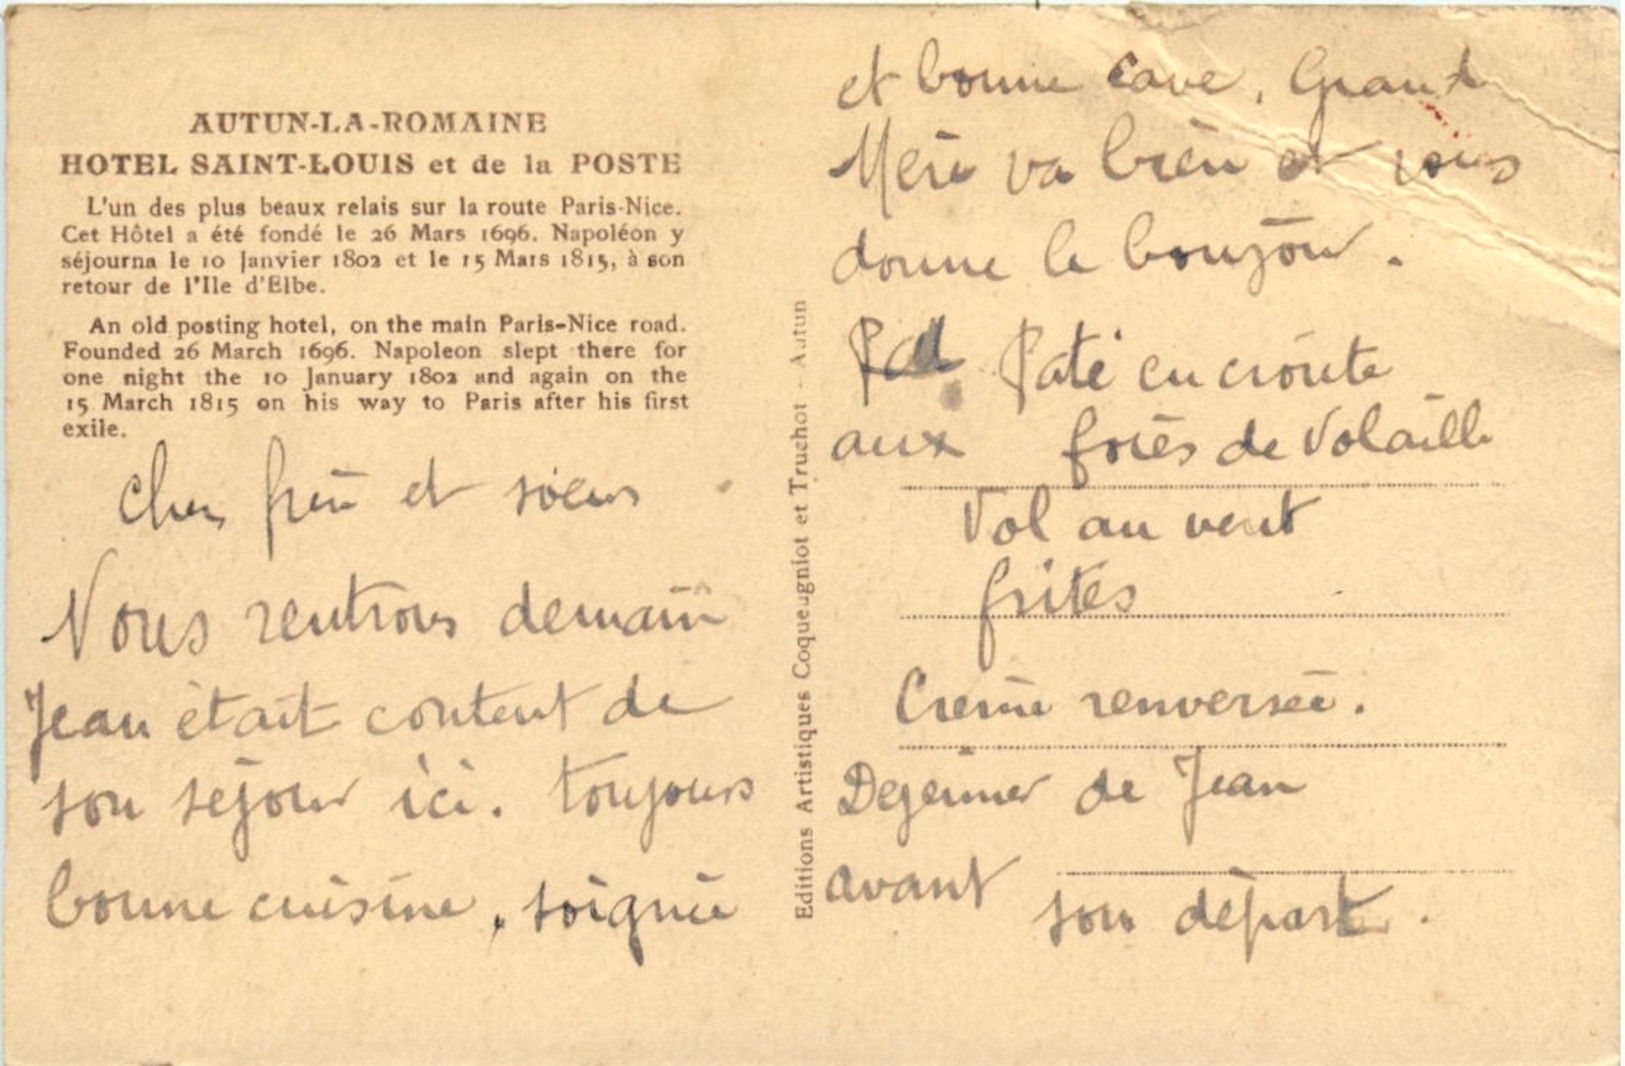 AUTUN-LA-ROMAINE
HOTEL SAINT-LOUIS et de la POSTE
L'un des plus beaux relais sur la route Paris-Nice.
Cet Hôtel a été fondé le 26 Mars 1696. Napoléon y
séjourna le 10 Janvier 1802 et le 15 Mars 1815, à son
retour de l'Ile d'Elbe.
An old posting hotel, on the main Paris-Nice road.
Founded 26 March 1696. Napoleon slept there for
one night the 10 January 1802 and again on the
15 March 1815 on his way to Paris after his first
exile.
Cher frère et soeur
Nous rentrons demain
Jean était content de
son séjour ici. toujours
bonne cuisine, soignée
Editions Artistiques Coqueugniot et Truchot - Autun
et bonne cave. Grand
Mère va bien et vous
donne le bonjour.
Paté en croute
aux foies de Volaille
Vol au vent
frites
Crème renversée.
Dejeuner de Jean
avant son départ.